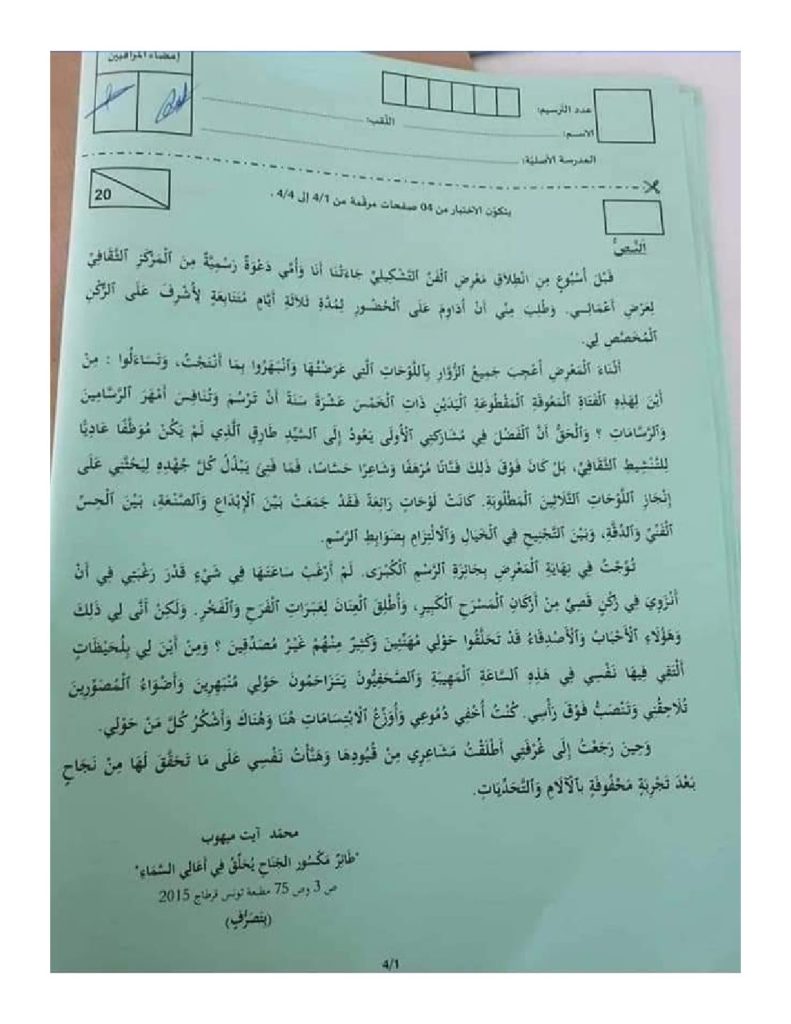 إمضاء المراقبين
عدد الترسيم:
الاسم: اللقب:
المدرسة الأصلية:
20
يتكوّن الاختبار من 04 صفحات مرقّمة من 4/1 إلى 4/4 .
اَلنَّصُّ
قَبْلَ أُسْبُوعٍ مِنِ انْطِلَاقِ مَعْرِضِ الْفَنِّ التَّشْكِيلِيِّ جَاءَتْنَا أَنَا وَأُمِّي دَعْوَةٌ رَسْمِيَّةٌ مِنَ الْمَرْكَزِ الثَّقَافِيِّ
لِعَرْضِ أَعْمَالِي. وَطُلِبَ مِنِّي أَنْ أُدَاوِمَ عَلَى الْحُضُورِ لِمُدَّةِ ثَلَاثَةِ أَيَّامٍ مُتَتَابِعَةٍ لِأُشْرِفَ عَلَى الرُّكْنِ
الْمُخَصَّصِ لِي.
أَثْنَاءَ الْمَعْرِضِ أُعْجِبَ جَمِيعُ الزُّوَّارِ بِاللَّوْحَاتِ الَّتِي عَرَضْتُهَا وَانْبَهَرُوا بِمَا أَنْتَجْتُ، وَتَسَاءَلُوا : مِنْ
أَيْنَ لِهَذِهِ الْفَتَاةِ الْمَعُوقَةِ الْمَقْطُوعَةِ الْيَدَيْنِ ذَاتِ الْخَمْسَ عَشْرَةَ سَنَةً أَنْ تَرْسُمَ وَتُنَافِسَ أَمْهَرَ الرَّسَّامِينَ
وَالرَّسَّامَاتِ ؟ وَالْحَقُّ أَنَّ الْفَضْلَ فِي مُشَارَكَتِي الْأُولَى يَعُودُ إِلَى السَّيِّدِ طَارِقِ الَّذِي لَمْ يَكُنْ مُوَظَّفًا عَادِيًّا
لِلتَّنْشِيطِ الثَّقَافِيِّ، بَلْ كَانَ فَوْقَ ذَلِكَ فَنَّانًا مُرْهَفًا وَشَاعِرًا حَسَّاسًا، فَمَا فَتِئَ يَبْذُلُ كُلَّ جُهْدِهِ لِيَحُثَّنِي عَلَى
إِنْجَازِ اللَّوْحَاتِ الثَّلَاثِينَ الْمَطْلُوبَةِ. كَانَتْ لَوْحَاتٍ رَائِعَةً فَقَدْ جَمَعَتْ بَيْنَ الْإِبْدَاعِ وَالصَّنْعَةِ، بَيْنَ الْحِسِّ
الْفَنِّيِّ وَالدِّقَّةِ، وَبَيْنَ التَّجْنِيحِ فِي الْخَيَالِ وَالْالْتِزَامِ بِضَوَابِطِ الرَّسْمِ.
تُوِّجْتُ فِي نِهَايَةِ الْمَعْرِضِ بِجَائِزَةِ الرَّسْمِ الْكُبْرَى. لَمْ أَرْغَبْ سَاعَتَهَا فِي شَيْءٍ قَدْرَ رَغْبَتِي فِي أَنْ
أَنْزَوِيَ فِي رُكْنٍ قَصِيٍّ مِنْ أَرْكَانِ الْمَسْرَحِ الْكَبِيرِ، وَأُطْلِقَ الْعِنَانَ لِعَبَرَاتِ الْفَرَحِ وَالْفَخْرِ. وَلَكِنْ أَنَّى لِي ذَلِكَ
وَهَؤُلَاءِ الْأَحْبَابُ وَالْأَصْدِقَاءُ قَدْ تَحَلَّقُوا حَوْلِي مُهَنِّئِينَ وَكَثِيرٌ مِنْهُمْ غَيْرُ مُصَدِّقِينَ ؟ وَمِنْ أَيْنَ لِي بِلُحَيْظَاتٍ
أَلْتَقِي فِيهَا نَفْسِي فِي هَذِهِ السَّاعَةِ الْمَهِيبَةِ وَالصَّحَفِيُّونَ يَتَزَاحَمُونَ حَوْلِي مُنْبَهِرِينَ وَأَضْوَاءُ الْمُصَوِّرِينَ
تُلَاحِقُنِي وَتَنْصَبُّ فَوْقَ رَأْسِي. كُنْتُ أُخْفِي دُمُوعِي وَأُوَزِّعُ الْابْتِسَامَاتِ هُنَا وَهُنَاكَ وَأَشْكُرُ كُلَّ مَنْ حَوْلِي.
وَحِينَ رَجَعْتُ إِلَى غُرْفَتِي أَطْلَقْتُ مَشَاعِرِي مِنْ قُيُودِهَا وَهَنَّأْتُ نَفْسِي عَلَى مَا تَحَقَّقَ لَهَا مِنْ نَجَاحٍ
بَعْدَ تَجْرِبَةٍ مَحْفُوفَةٍ بِالْآلَامِ وَالتَّحَدِّيَاتِ.
محمّد آيت ميهوب
"طَائِرٌ مَكْسُور الجَنَاحِ يُحَلِّقُ فِي أَعَالِي السَّمَاءِ"
ص 3 وص 75 مطبعة تونس قرطاج 2015
(بِتَصَرُّفٍ)
4/1